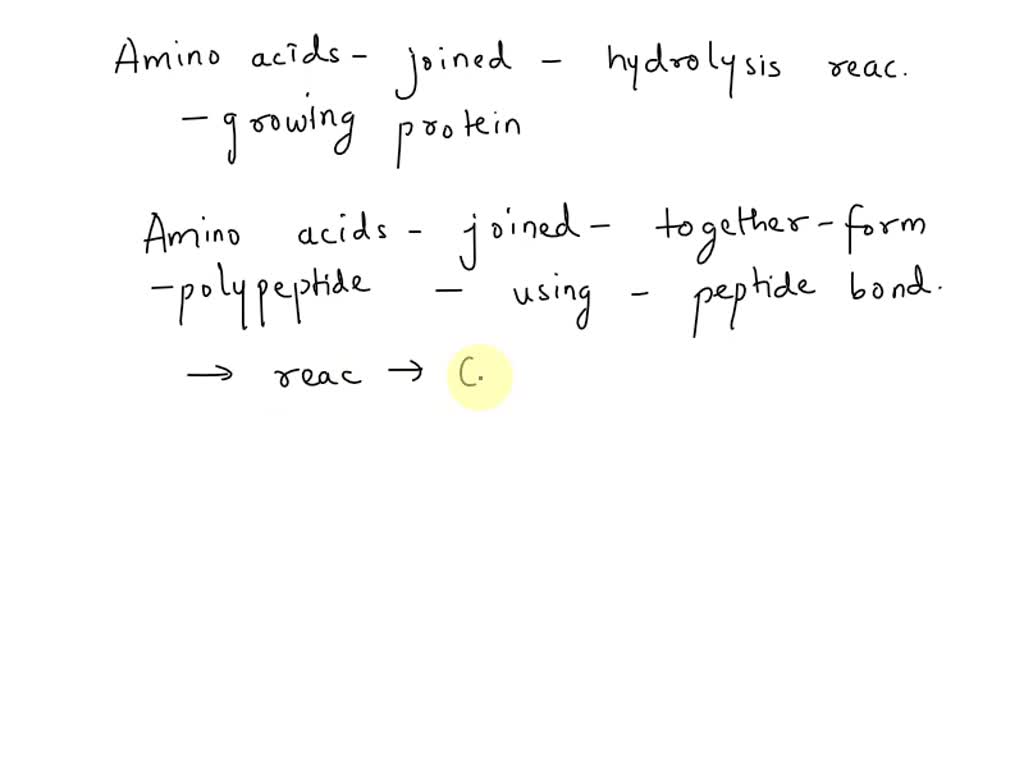 Amino acids - joined - hydrolysis reac.
- growing protein
Amino acids - joined - together - form
- polypeptide - using - peptide bond.
→ reac → C.